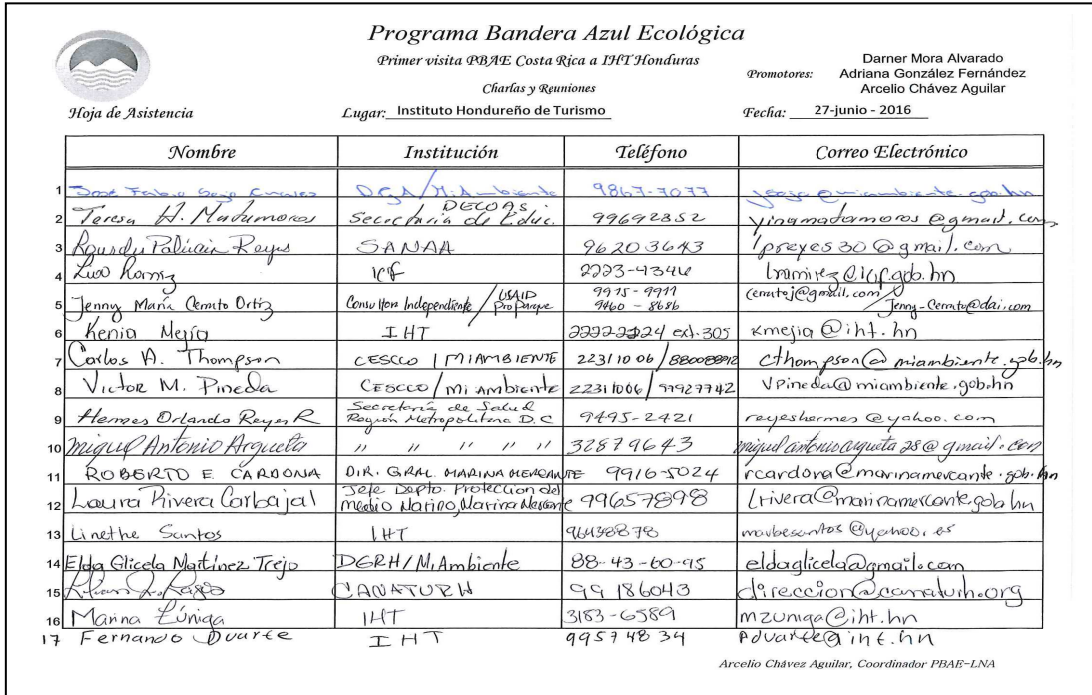 Programa Bandera Azul Ecológica
Primer visita PBAE Costa Rica a IHT Honduras
Charlas y Reuniones
Promotores: Darner Mora Alvarado
Adriana González Fernández
Arcelio Chávez Aguilar
Hoja de Asistencia Lugar: Instituto Hondureño de Turismo Fecha: 27-junio - 2016
Nombre Institución Teléfono Correo Electrónico
1 José DGA/MiAmbiente 9867-7077
2 Teresa H. Matamoros DECOAS Secretaria de Educ. 99692852 yinamatamoros@gmail.com
3 Reyes SANAA 96203643 lpreyes30@gmail.com
4 ICF 2223-4346 lramirez@icf.gob.hn
5 Jenny María Cerrato Ortiz Consultora Independiente / USAID ProParque 9975-9911 9460-8686 cerratoj@gmail.com / Jenny-Cerrato@dai.com
6 Kenia Mejía IHT 2222-2124 ext.305 kmejia@iht.hn
7 Carlos A. Thompson CESCCO / MIAMBIENTE 22311006/88008892 cthompson@miambiente.gob.hn
8 Victor M. Pineda CESCCO/Mi Ambiente 22311006/99927742 vpineda@miambiente.gob.hn
9 Hermes Orlando Reyes R Secretaría de Salud Región Metropolitana D.C 9495-2421 reyeshermes@yahoo.com
10 Miguel Antonio Argueta " " " " " 32879643 miguelantonioargueta28@gmail.com
11 ROBERTO E. CARDONA DIR. GRAL. MARINA MERCANTE 9916-5024 rcardona@marinamercante.gob.hn
12 Laura Rivera Carbajal Jefe Depto. Protección del Medio Marino, Marina Mercante 99657898 lrivera@marinamercante.gob.hn
13 Linethe Santos IHT 96438878
14 Elda Glicela Martínez Trejo DGRH/MiAmbiente 88-43-60-95 eldaglicela@gmail.com
15 CANATURH 99186043 direccion@canaturh.org
16 Marina Zúniga IHT 3183-6589 mzuniga@iht.hn
17 Fernando Duarte IHT 99574834
Arcelio Chávez Aguilar, Coordinador PBAE-LNA